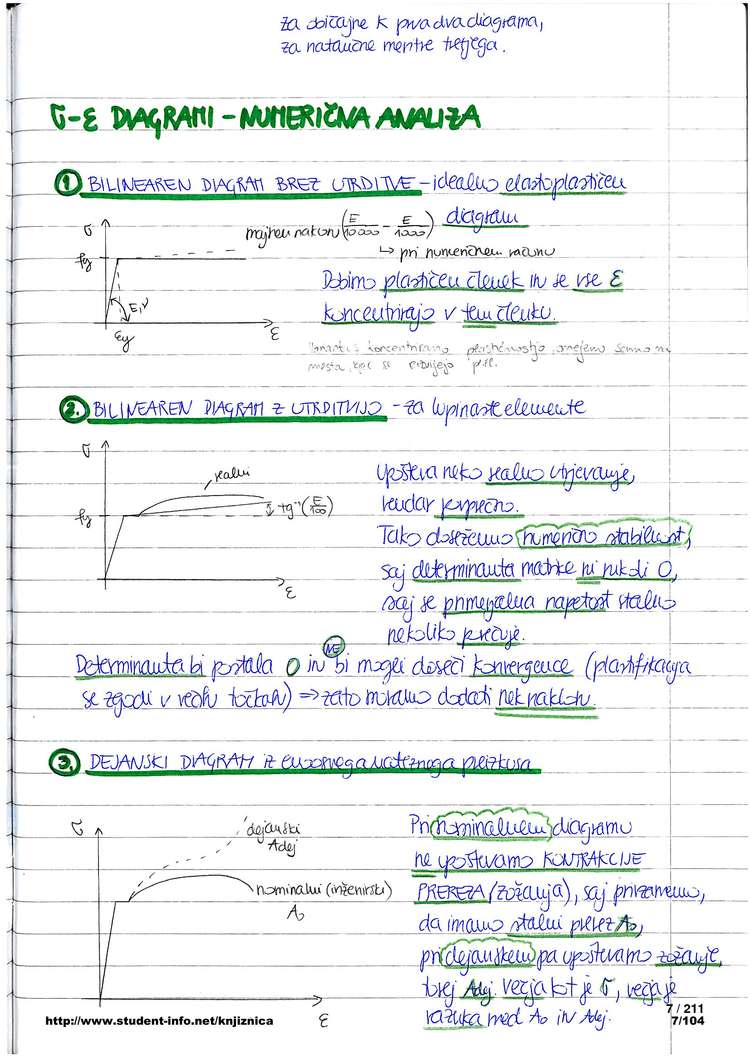 Za običajne k prva dva diagrama,
za natančne mentre tretjega.
σ-ε DIAGRAMI - NUMERIČNA ANALIZA
1 BILINEAREN DIAGRAM BREZ UTRDITVE - idealno elastoplastičen
diagram
σ
majhen naklon (E/10000 - E/1000)
↳ pri numeričnem računu
fy
E, ν
εy
ε
Dobimo plastičen členek in se vse ε
koncentrirajo v tem členku.
koncentrirano plastičnostjo omejemo samo na
mesta, kjer se razvijejo
2. BILINEAREN DIAGRAM Z UTRDITVIJO - za lupinaste elemente
σ
realni
fy
tg⁻¹(E/100)
ε
Upošteva neko realno utrjevanje,
vendar povprečno.
Tako dosežemo numerično stabilnost,
saj determinanta matrike ni nikoli 0,
saj se primerjalna napetost stalno
nekoliko povečuje.
Determinanta bi postala 0 in NE bi mogli doseči konvergence (plastifikacija
se zgodi v večih točkah) ⇒ zato moramo dodati nek naklon.
3. DEJANSKI DIAGRAM iz enoosnega nateznega preizkusa
σ
dejanski
Adej
nominalni (inženirski)
A₀
ε
Pri nominalnem diagramu
ne upoštevamo KONTRAKCIJE
PREREZA (zožanja), saj privzamemo,
da imamo stalni prerez A₀,
pri dejanskem pa upoštevamo zožanje,
torej Adej. Večja kot je σ, večja je
razlika med A₀ in Adej.
http://www.student-info.net/knjiznica
7 / 211
7/104